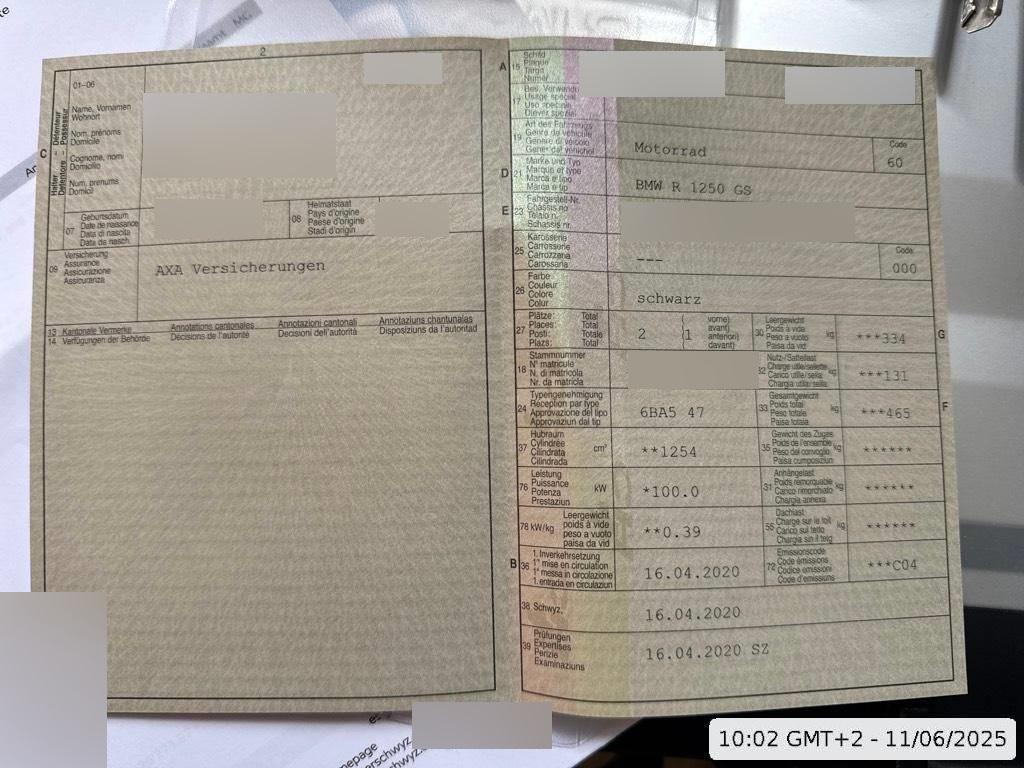 2
01–06
Name, Vornamen
Wohnort
Nom, prénoms
Domicile
Cognome, nomi
Domicilio
Num, prenums
Domicil
C
Halter – Détenteur
Detentore – Possessur
07
Geburtsdatum
Date de naissance
Data di nascita
Data da nasch.
08
Heimatstaat
Pays d'origine
Paese d'origine
Stadi d'origin
09
Versicherung
Assurance
Assicurazione
Assicuranza
AXA Versicherungen
13 Kantonale Vermerke Annotations cantonales Annotazioni cantonali Annotaziuns chantunalas
14 Verfügungen der Behörde Décisions de l'autorité Decisioni dell'autorità Disposiziuns da l'autoritad
A
15
Schild
Plaque
Targa
Numer
17
Bes. Verwendung
Usage spécial
Uso speciale
Diever spezial
19
Art des Fahrzeugs
Genre de véhicule
Genere di veicolo
Gener dal vehichel
Motorrad
Code
60
D
21
Marke und Typ
Marque et type
Marca e tipo
Marca e tip
BMW R 1250 GS
E
23
Fahrgestell-Nr.
Châssis no
Telaio n.
Schassis nr.
25
Karosserie
Carrosserie
Carrozzeria
Carossaria
---
Code
000
26
Farbe
Couleur
Colore
Colur
schwarz
27
Plätze: Total
Places: Total
Posti: Totale
Plazs: Total
2
(1
vorne)
avant)
anteriori)
davant)
30
Leergewicht
Poids à vide
Peso a vuoto
Paisa da vid
kg
***334
G
18
Stammnummer
N° matricule
N. di matricola
Nr. da matricla
32
Nutz-/Sattellast
Charge utile/sellette
Carico utile/sella
Chargia utila/sella
kg
***131
24
Typengenehmigung
Réception par type
Approvazione del tipo
Approvaziun dal tip
6BA5 47
33
Gesamtgewicht
Poids total
Peso totale
Paisa totala
kg
***465
F
37
Hubraum
Cylindrée
Cilindrata
Cilindrada
cm³
**1254
35
Gewicht des Zuges
Poids de l'ensemble
Peso del convoglio
Paisa cumposiziun
kg
******
76
Leistung
Puissance
Potenza
Prestaziun
kW
*100.0
31
Anhängelast
Poids remorquable
Carico rimorchiato
Chargia annexa
kg
******
78 kW/kg
Leergewicht
poids à vide
peso a vuoto
paisa da vid
**0.39
55
Dachlast
Charge sur le toit
Carico sul tetto
Chargia sin il tetg
kg
******
B
36
1. Inverkehrsetzung
1re mise en circulation
1a messa in circolazione
1. entrada en circulaziun
16.04.2020
72
Emissionscode
Code émissions
Codice emissioni
Code d'emissiuns
***C04
38 Schwyz,
16.04.2020
39
Prüfungen
Expertises
Perizie
Examinaziuns
16.04.2020 SZ
10:02 GMT+2 - 11/06/2025